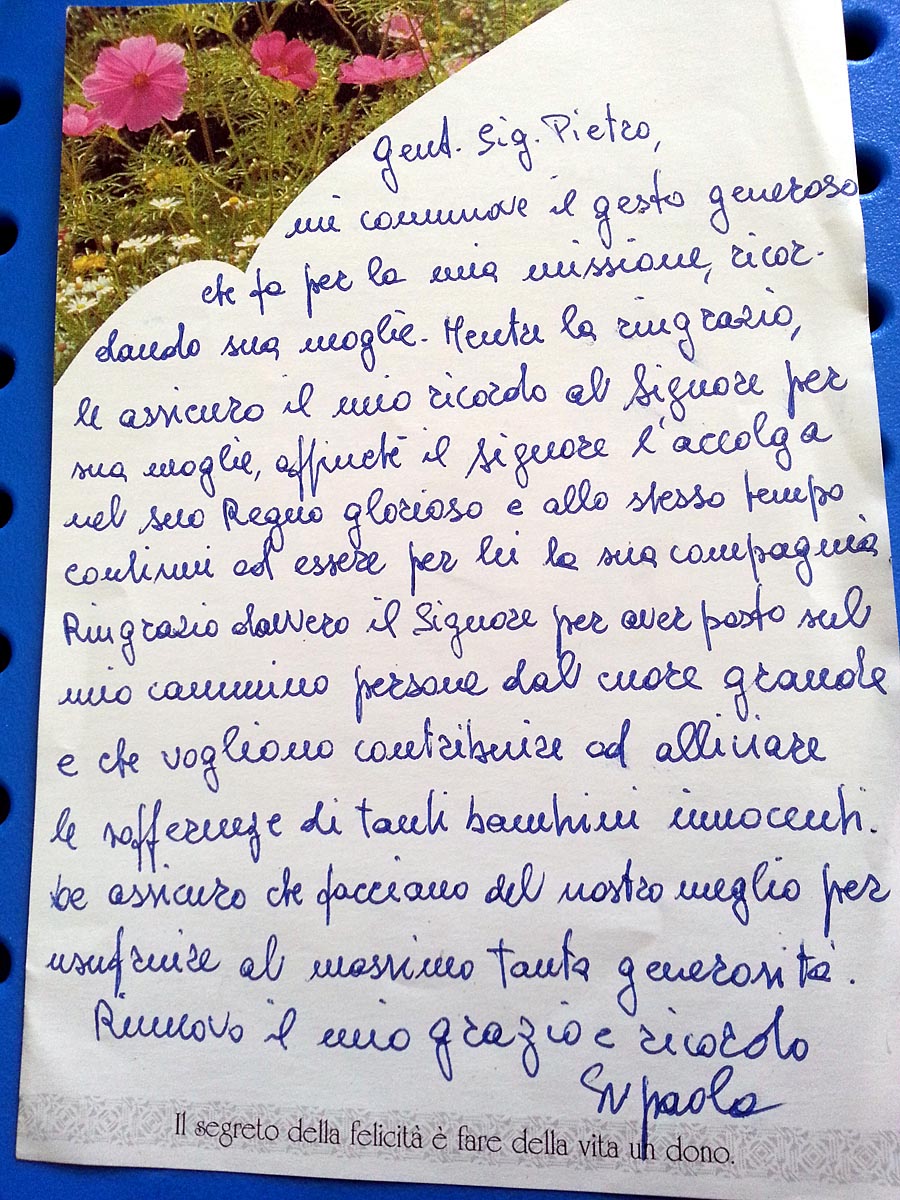 Gent. Sig. Pietro,
mi commuove il gesto generoso
che fa per la mia missione, ricor-
dando sua moglie. Mentre la ringrazio,
le assicuro il mio ricordo al Signore per
sua moglie, affinché il Signore l'accolga
nel suo Regno glorioso e allo stesso tempo
continui ad essere per lei la sua compagnia.
Ringrazio davvero il Signore per aver posto sul
mio cammino persone dal cuore grande
e che vogliono contribuire ad alliviare
le sofferenze di tanti bambini innocenti.
Le assicuro che facciamo del nostro meglio per
usufruire al massimo tanta generosità.
Rinnovo il mio grazio e ricordo
Sr paola
Il segreto della felicità è fare della vita un dono.